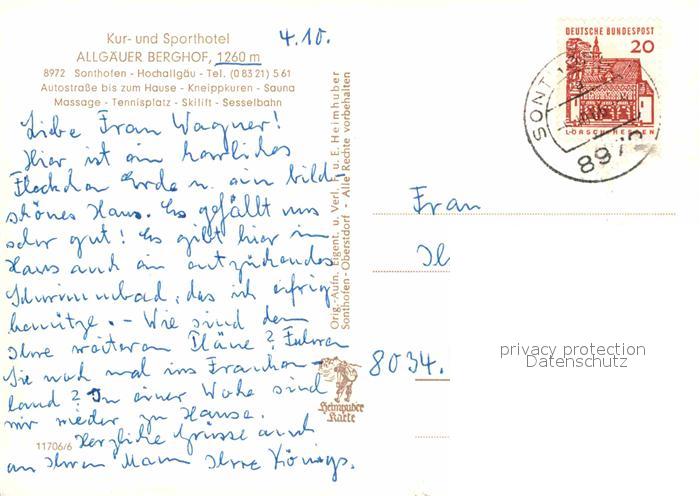 Kur- und Sporthotel
ALLGÄUER BERGHOF, 1260 m
8972 Sonthofen - Hochallgäu - Tel. (0 83 21) 5 61
Autostraße bis zum Hause - Kneippkuren - Sauna
Massage - Tennisplatz - Skilift - Sesselbahn
4.10.
Liebe Frau Wagner!
Hier ist ein herrliches
Fleckchen Erde u. ein bild-
schönes Haus. Es gefällt uns
sehr gut! Es gibt hier im
Haus auch ein entzückendes
Schwimmbad, das ich eifrig
benütze. - Wie sind denn
Ihre weiteren Pläne? Fahren
Sie noch mal ins Franken-
land? In einer Woche sind
wir wieder zu Hause.
Herzliche Grüsse auch
an Ihren Mann Ihre Königs.
11706/6
Orig.-Aufn. Eigent. u. Verl. T. u. E. Heimhuber
Sonthofen-Oberstdorf - Alle Rechte vorbehalten
Heimhuber
Karte
DEUTSCHE BUNDESPOST
20
LORSCH/HESSEN
SONT
8972
Frau
8034.
privacy protection
Datenschutz